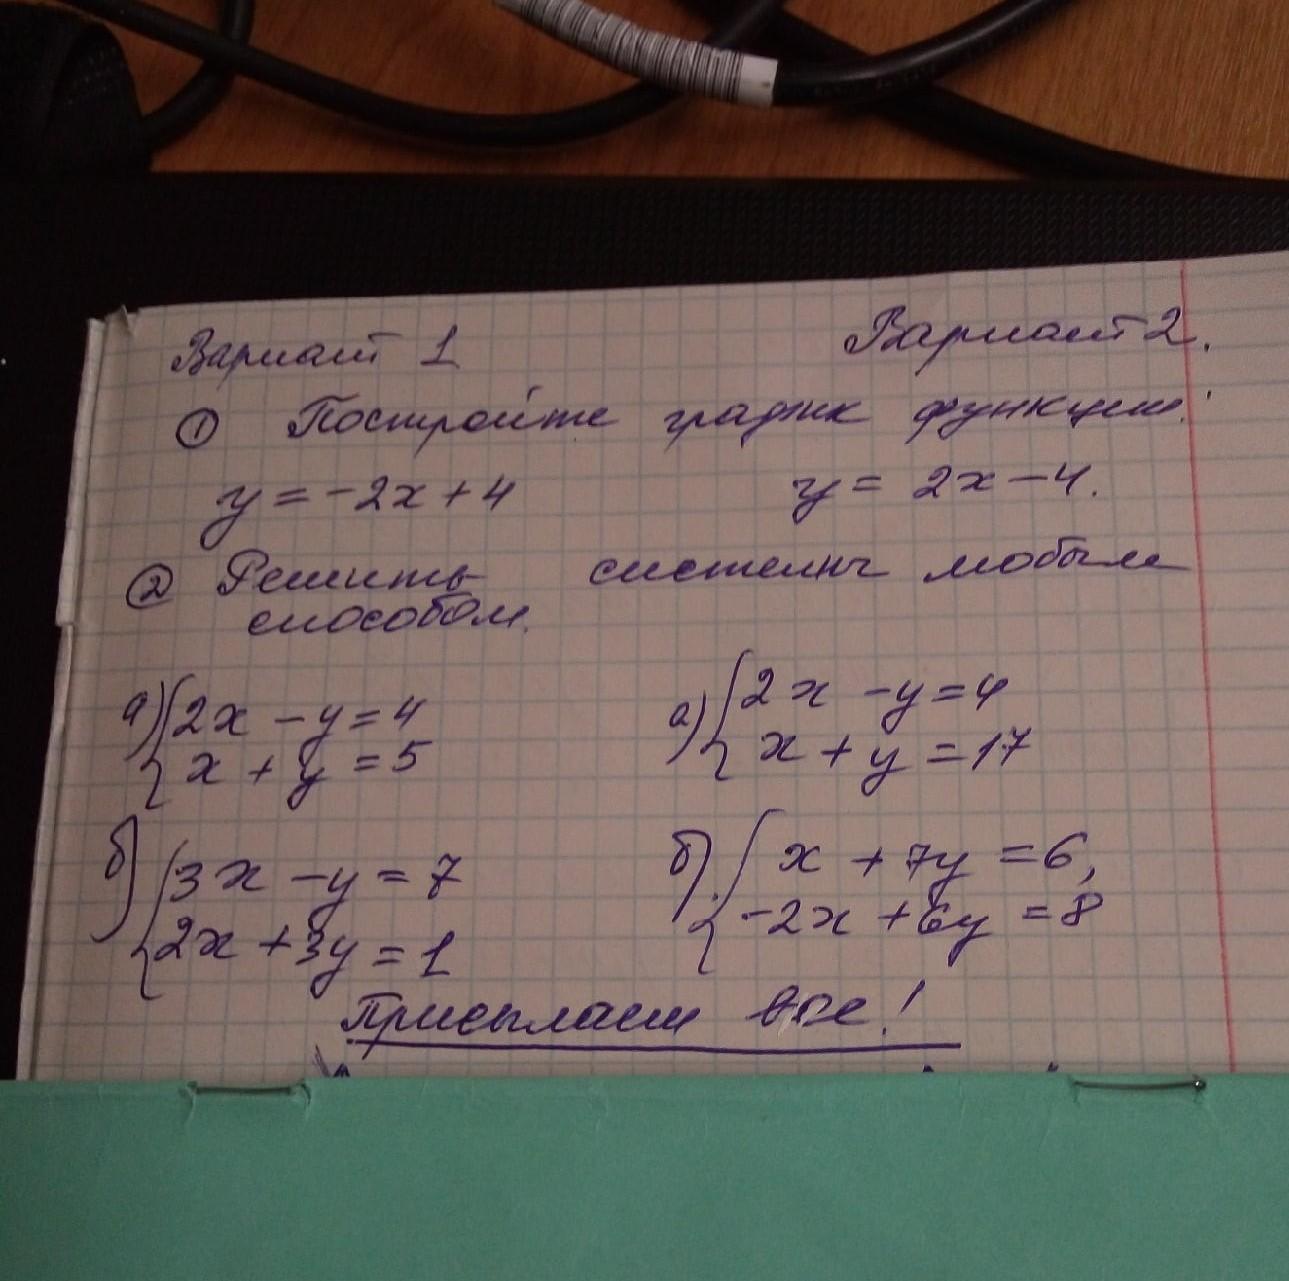 Вариант 1 Вариант 2.
① Постройте график функции:
y = -2x + 4 y = 2x - 4.
② Решить системы любым
способом.
а) { 2x - y = 4 а) { 2x - y = 4
x + y = 5 x + y = 17
б) { 3x - y = 7 б) { x + 7y = 6,
2x + 3y = 1 -2x + 6y = 8
Присылаем все!